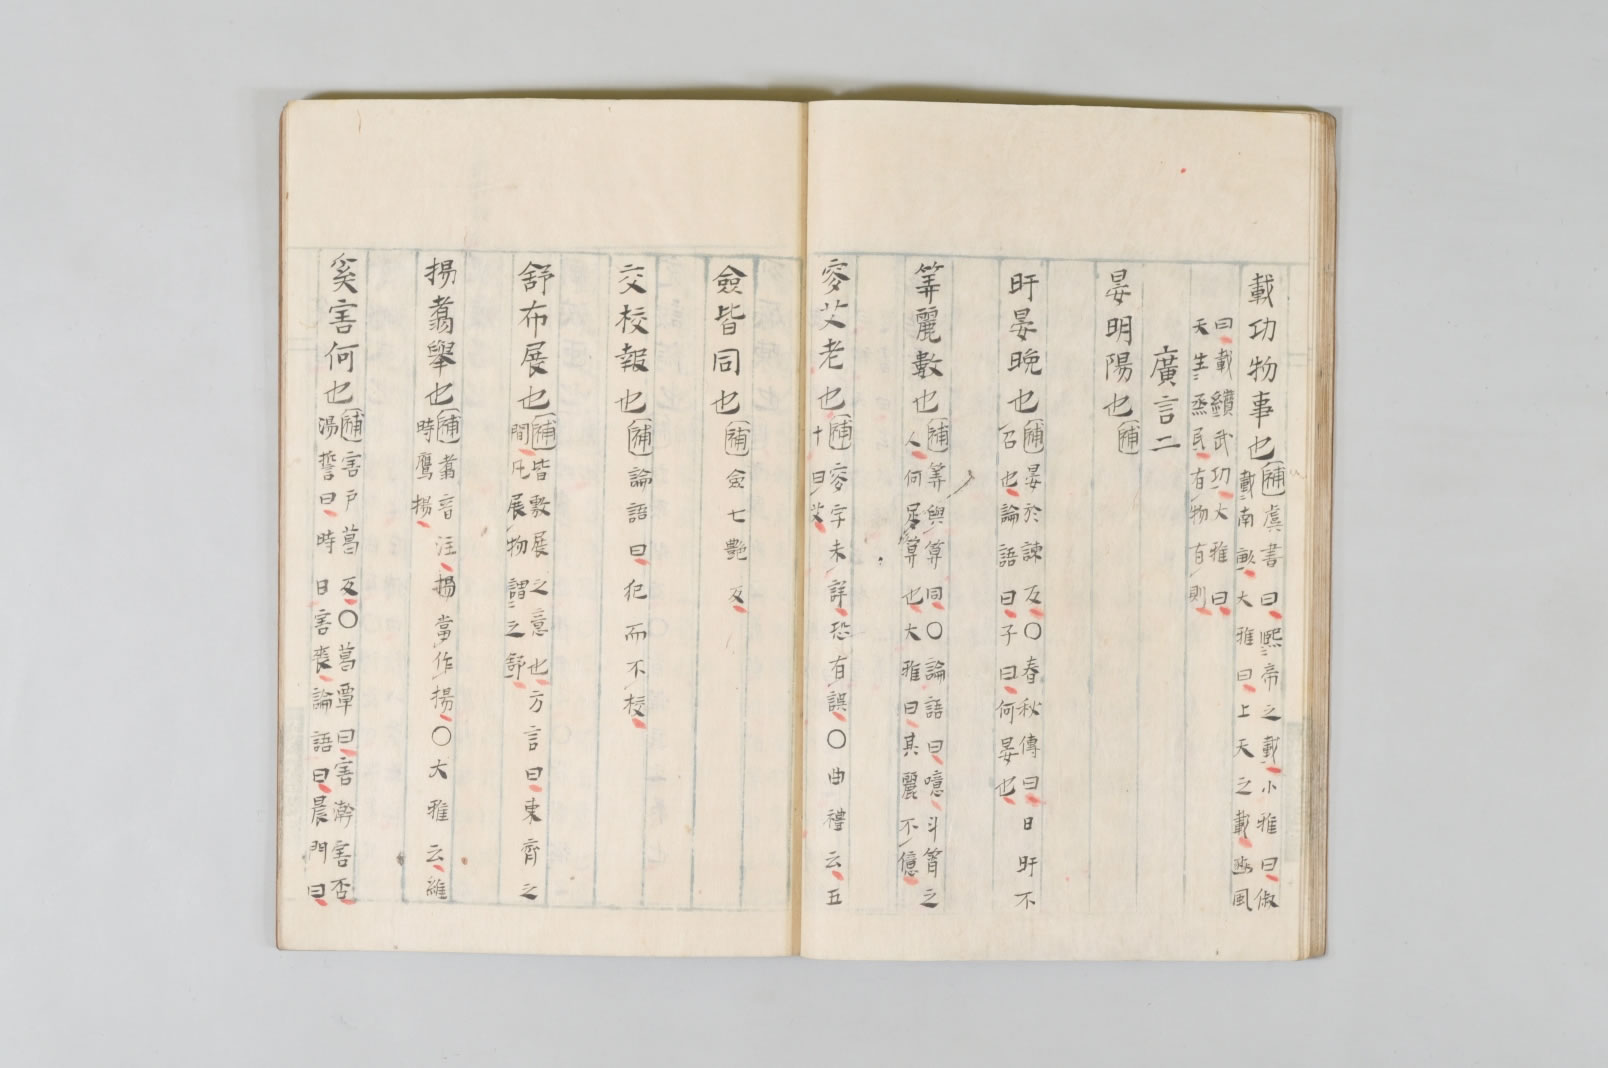 載功物事也補虞書曰熙帝之載小雅曰俶
載南畝大雅曰上天之載豳風
曰載纘武功大雅曰
天生烝民有物有則
廣言二
晏明陽也補
旰晏晩也補晏於諫反〇春秋傳曰日旰不
召也論語曰子曰何晏也
筭麗數也補筭與算同〇論語曰噫斗筲之
人何足算也大雅曰其麗不億
叜艾老也補叜字未詳恐有誤〇曲禮云五
十曰艾
僉皆同也補僉七艶反
交校報也補論語曰犯而不校
舒布展也補皆敷展之意也方言曰東齊之
間凡展物謂之舒
揚翥舉也補翥音注揚當作揚〇大雅云維
時鷹揚
奚害何也補害戸葛反〇葛覃曰害澣害否
湯誓曰時日害喪論語曰晨門曰